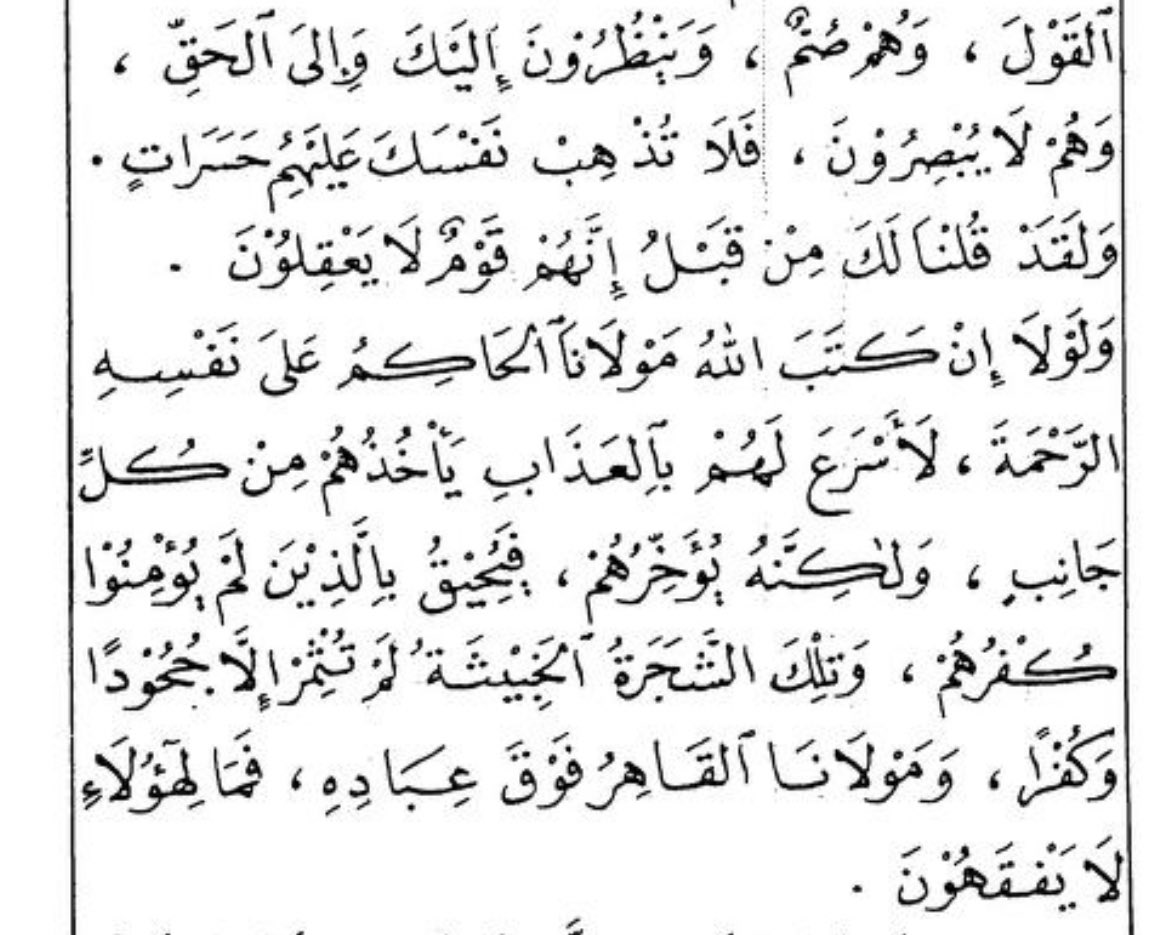 ٱلقَوْلَ ، وَهُمْ صُمٌّ ، وَيَنْظُرُوْنَ إِلَيْكَ وَإِلىَ ٱلحَقِّ ،
وَهُمْ لَا يُبْصِرُوْنَ ، فَلَا تُذْهِبْ نَفْسَكَ عَلَيْهِمُ حَسَرَاتٍ .
وَلَقَدْ قُلْنَا لَكَ مِنْ قَبْلُ إِنَّهُمْ قَوْمٌ لَا يَعْقِلُوْنَ .
وَلَوْلَا إِنْ كَتَبَ اللهُ مَوْلَانَا ٱلحَاكِمُ عَلىَ نَفْسِهِ
الرَّحْمَةَ ، لَأَسْرَعَ لَهُمْ بِٱلعَذَابِ يَأْخُذُهُمْ مِنْ كُلِّ
جَانِبٍ ، وَلٰكِنَّهُ يُؤَخِّرُهُمْ ، فَيَحِيْقُ بِالَّذِيْنَ لَمْ يُؤْمِنُوْا
كُفْرُهُمْ ، وَتِلْكَ الشَّجَرَةُ ٱلخَبِيْثَةُ لَمْ تُثْمِرْ إِلَّا جُحُوْدًا
وَكُفْرًا ، وَمَوْلَانَا ٱلقَاهِرُ فَوْقَ عِبَادِهِ ، فَمَا لِهَٓؤُلَاءِ
لَا يَفْقَهُوْنَ .